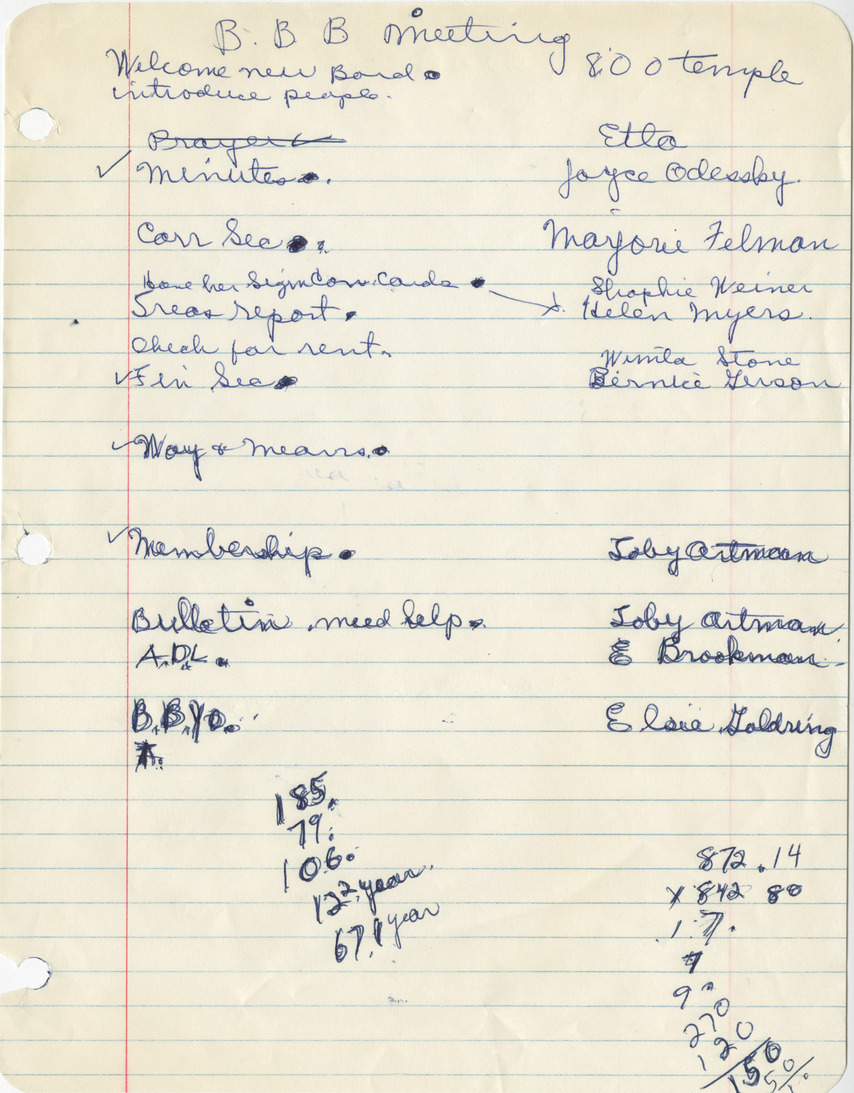 B. B B meeting
Welcome new Board
8:00 temple
introduce people.
Prayer
Etta
✓ Minutes.
Joyce Odessky.
Corr Sec
Marjorie Felman
Have her Sign Corr. Cards
Shophie Weiner
Treas report.
Helen Myers.
Check for rent.
Stone
✓ Fin Sec
Bernice Gerson
✓ Way & Means.
✓ Membership.
Toby Artman
Bulletin. need help.
Toby Artman
A.D.L.
E Brookman.
B.B.Y.O.
Elsie Goldring
A.
185.
79.
106.
12 2 year.
67.1 year
872.14
842 80
17.
9
270
120
150
50